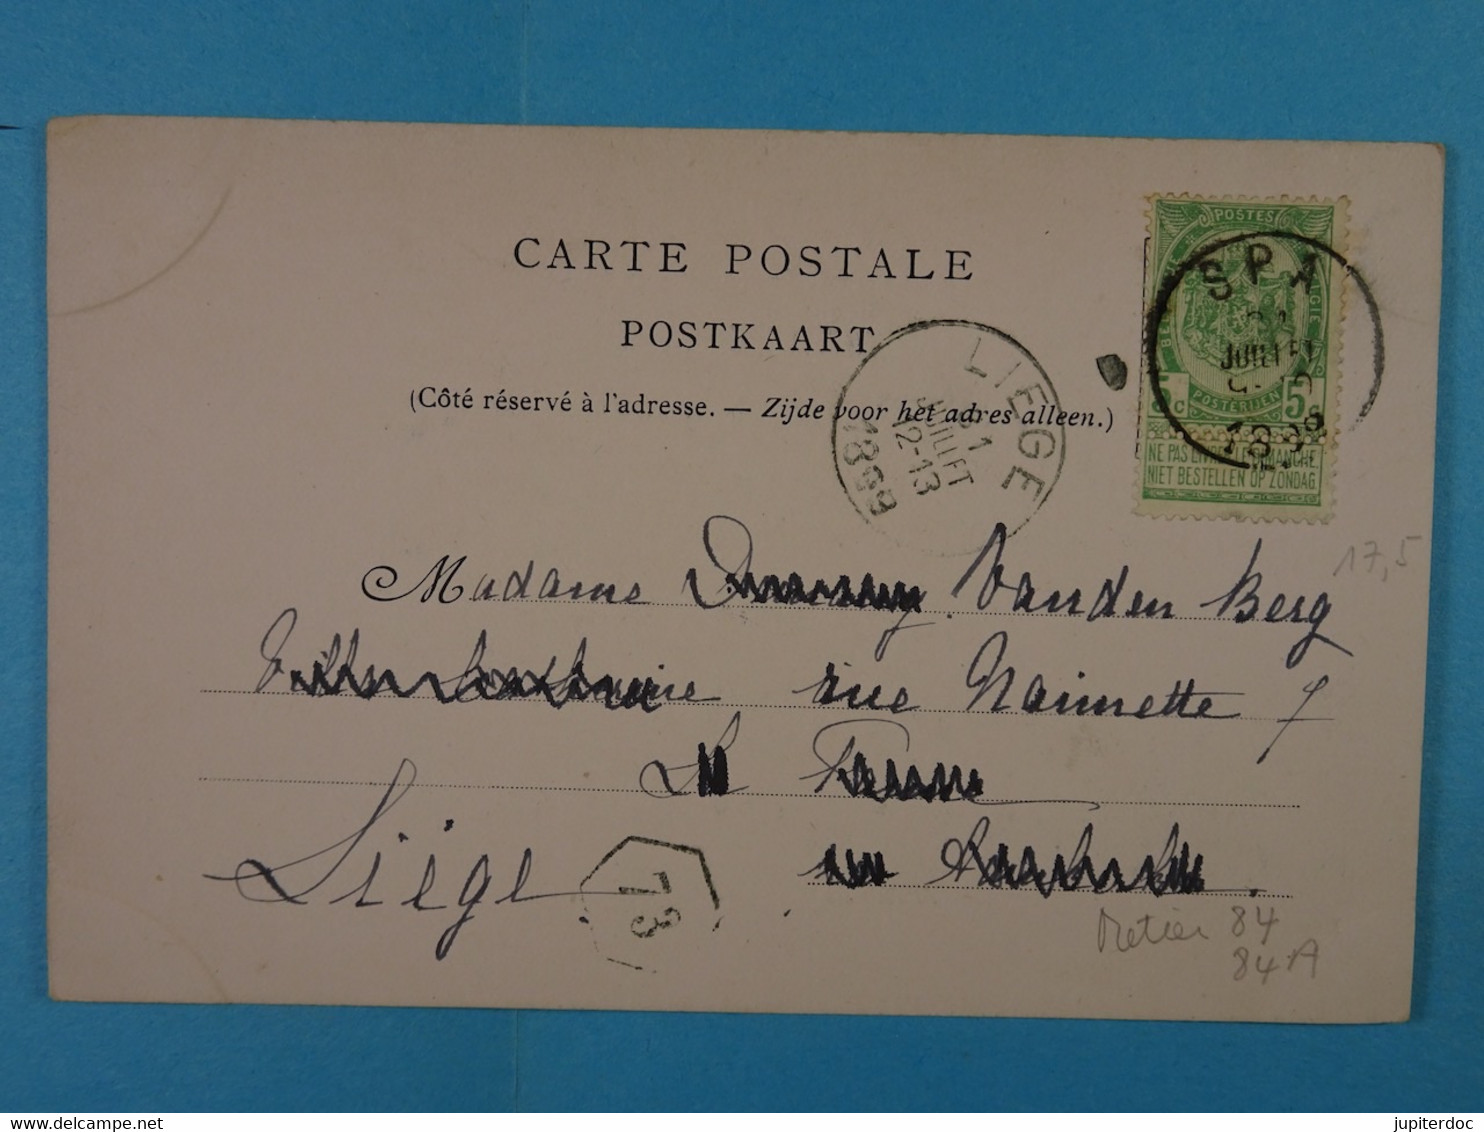 CARTE POSTALE
POSTKAART
(Côté réservé à l'adresse. — Zijde voor het adres alleen.)
POSTES
BELGIQUE
SPA
JUILLET
5c POSTERIJEN 5c
NE PAS LIVRER LE DIMANCHE
NIET BESTELLEN OP ZONDAG
LIEGE
31
JUILLET
12-13
1899
17,5
Madame Vanden Berg
rue Naimette 7
Liège
73
Metier 84
84A
delcampe.net
jupiterdoc